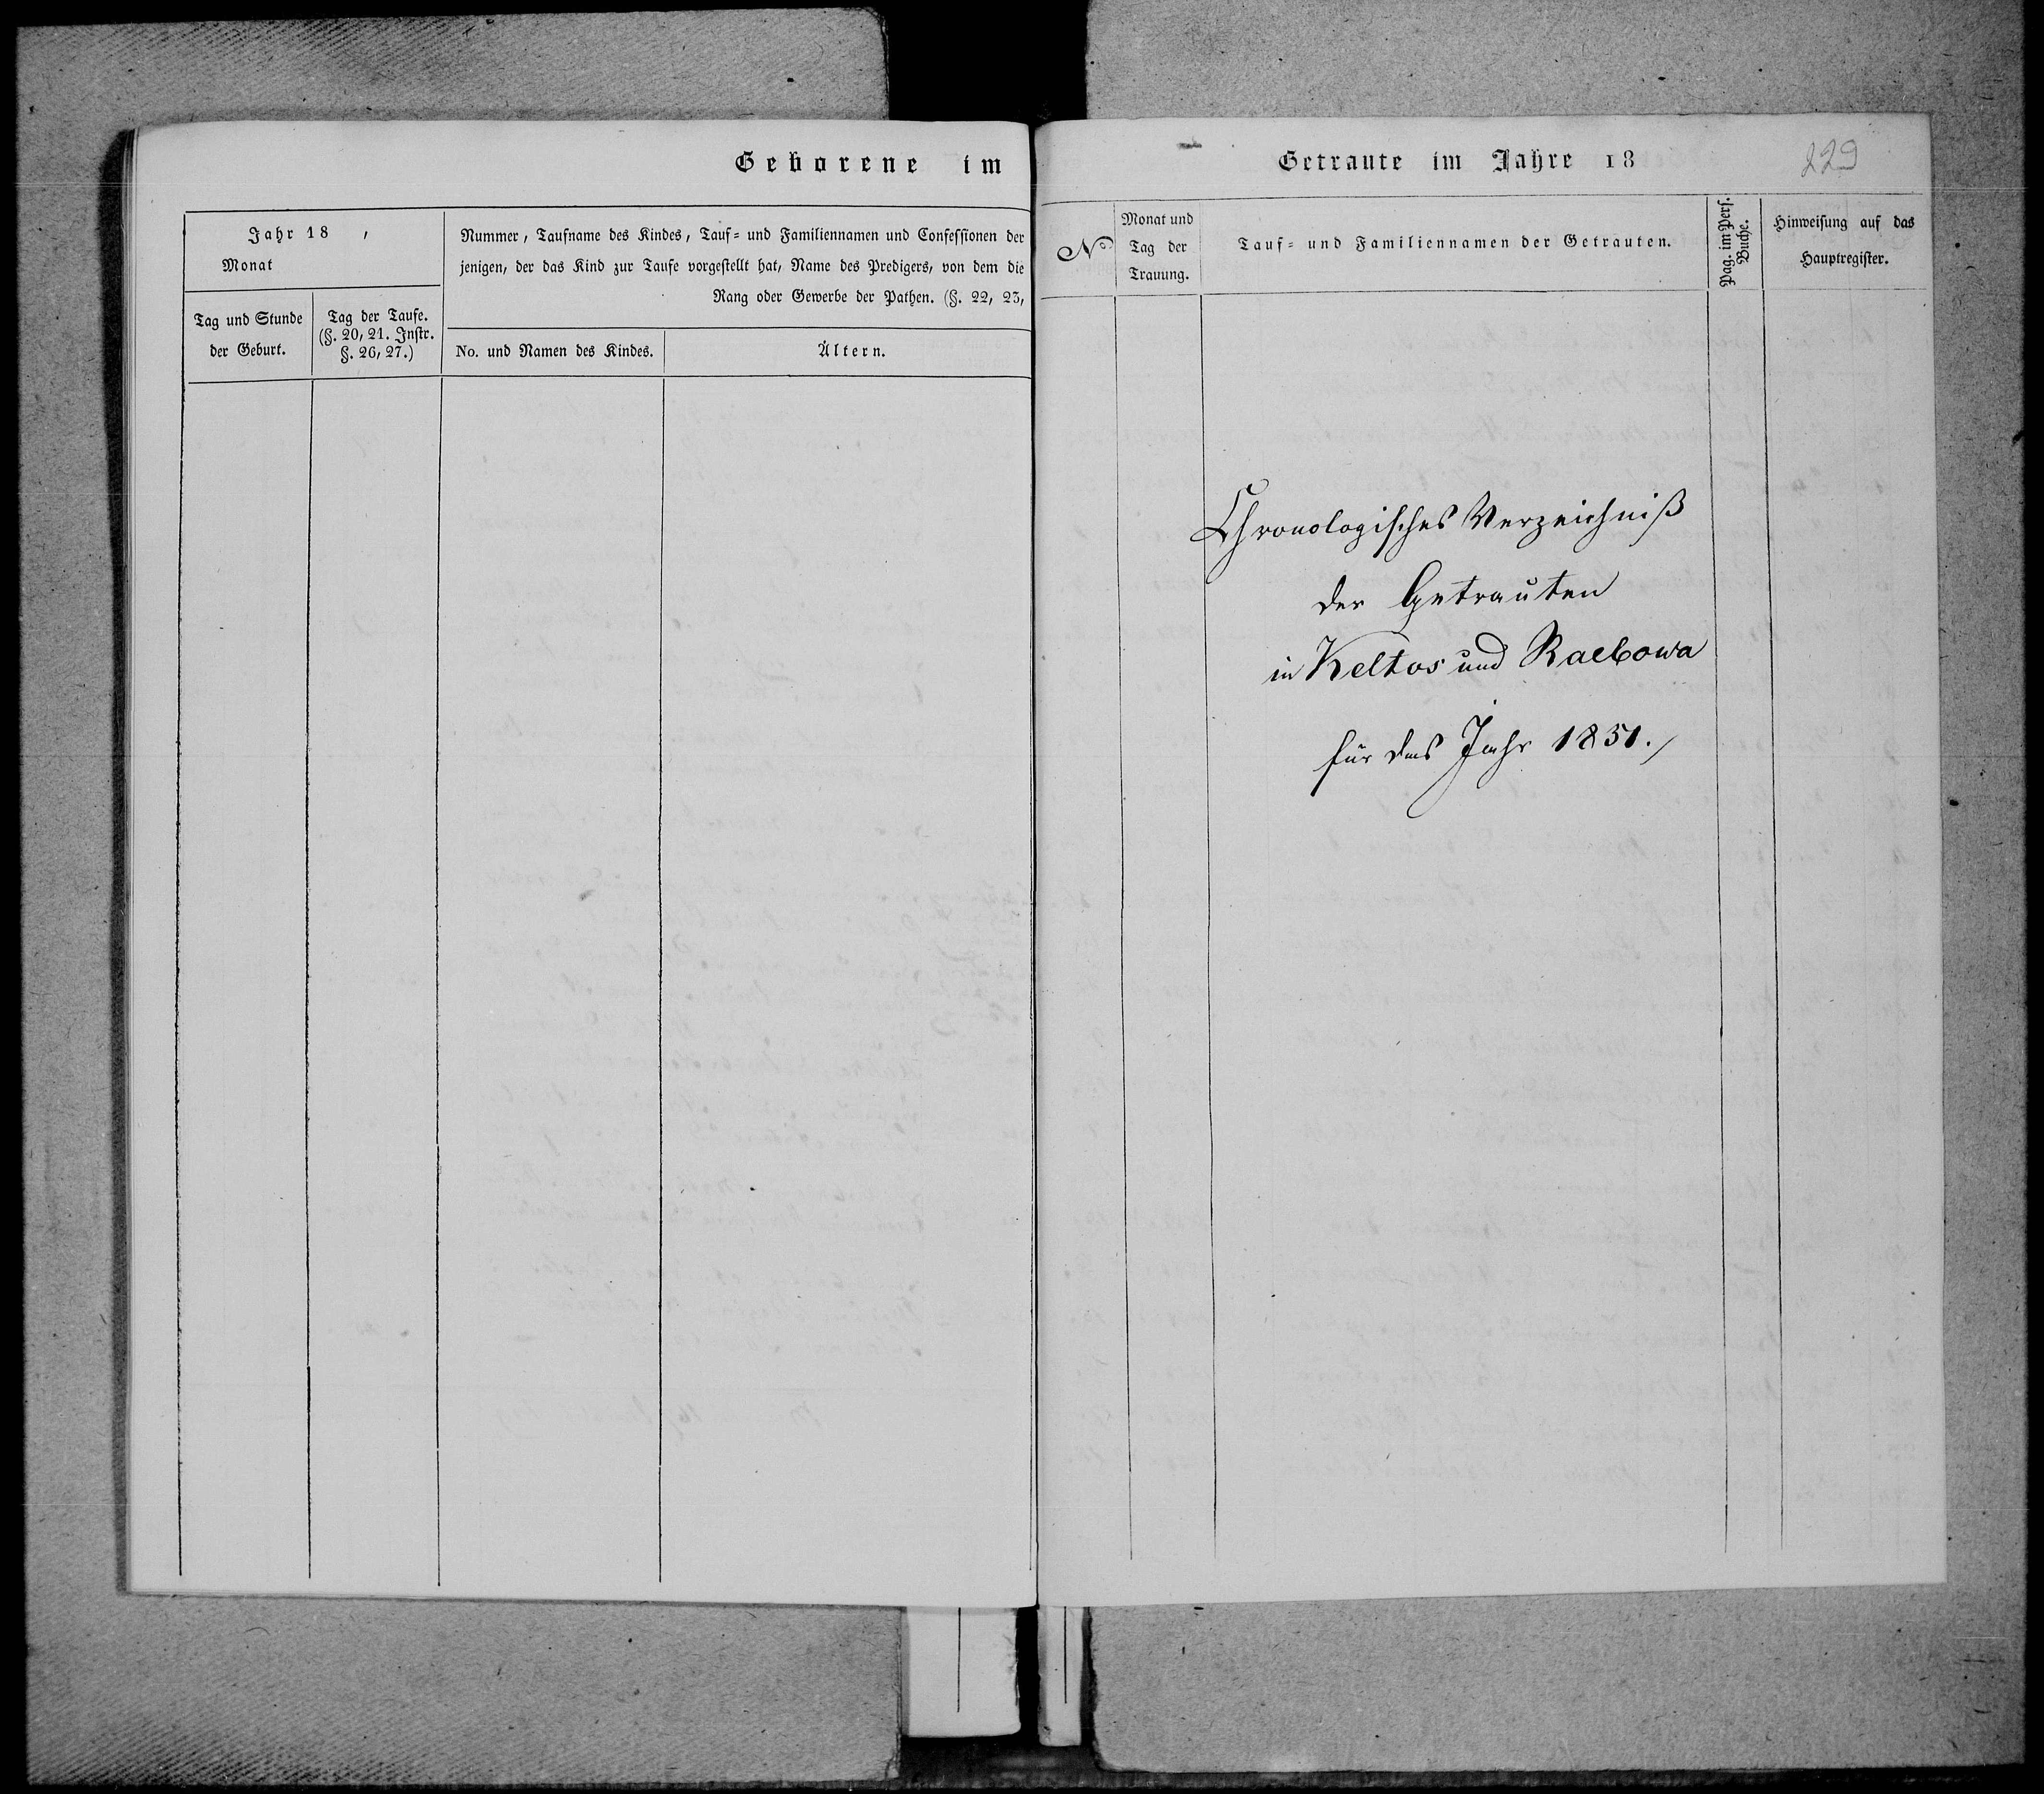 Geborene im
Jahr 18 ,
Monat
Nummer, Taufname des Kindes, Tauf- und Familiennamen und Confessionen der
jenigen, der das Kind zur Taufe vorgestellt hat, Name des Predigers, von dem die
Rang oder Gewerbe der Pathen. (§. 22, 23,
Tag und Stunde
der Geburt.
Tag der Taufe.
(§. 20, 21. Instr.
§. 26, 27.)
No. und Namen des Kindes.
Ältern.
Getraute im Jahre 18
229
No
Monat und
Tag der
Trauung.
Tauf- und Familiennamen der Getrauten.
Pag. im Pers.
Buche.
Hinweisung auf das
Hauptregister.
Chronologisches Verzeichniß
der Getrauten
in Keltos und Raebowa
für das Jahr 1851.